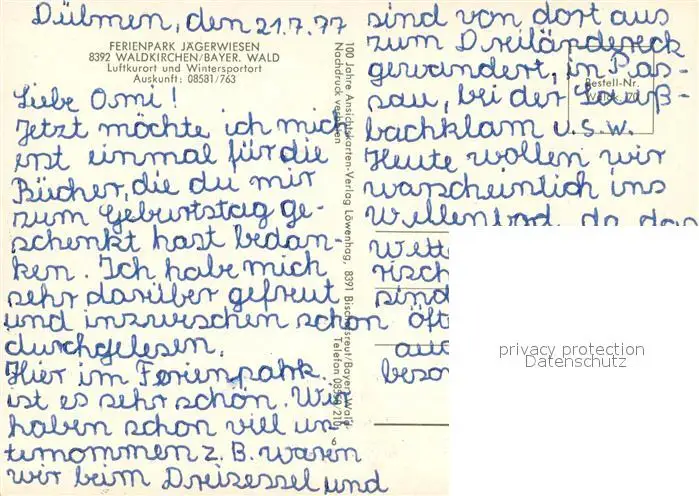 Dülmen, den 21.7.77
FERIENPARK JÄGERWIESEN
8392 WALDKIRCHEN/BAYER. WALD
Luftkurort und Wintersportort
Auskunft: 08581/763
Liebe Omi!
Jetzt möchte ich mich
erst einmal für die
Bücher, die du mir
zum Geburtstag ge-
schenkt hast bedan-
ken. Ich habe mich
sehr darüber gefreut
und inzwischen schon
durchgelesen.
Hier im Ferienpark
ist es sehr schön. Wir
haben schon viel un
ternommen z.B. waren
wir beim Dreisessel und
sind von dort aus
zum Dreiländereck
gewandert, in Pas-
sau, bei der Sauß-
bachklam u.s.w.
Heute wollen wir
warscheinlich ins
Wellenbad, da das
Wette
risch
sind
öft
au
beso
100 Jahre Ansichtskarten-Verlag Löwenhag, 8391 Bischofsreut/Bayer. Wald
Nachdruck verboten
Telefon 08550/210
6
Bestell-Nr.
privacy protection
Datenschutz